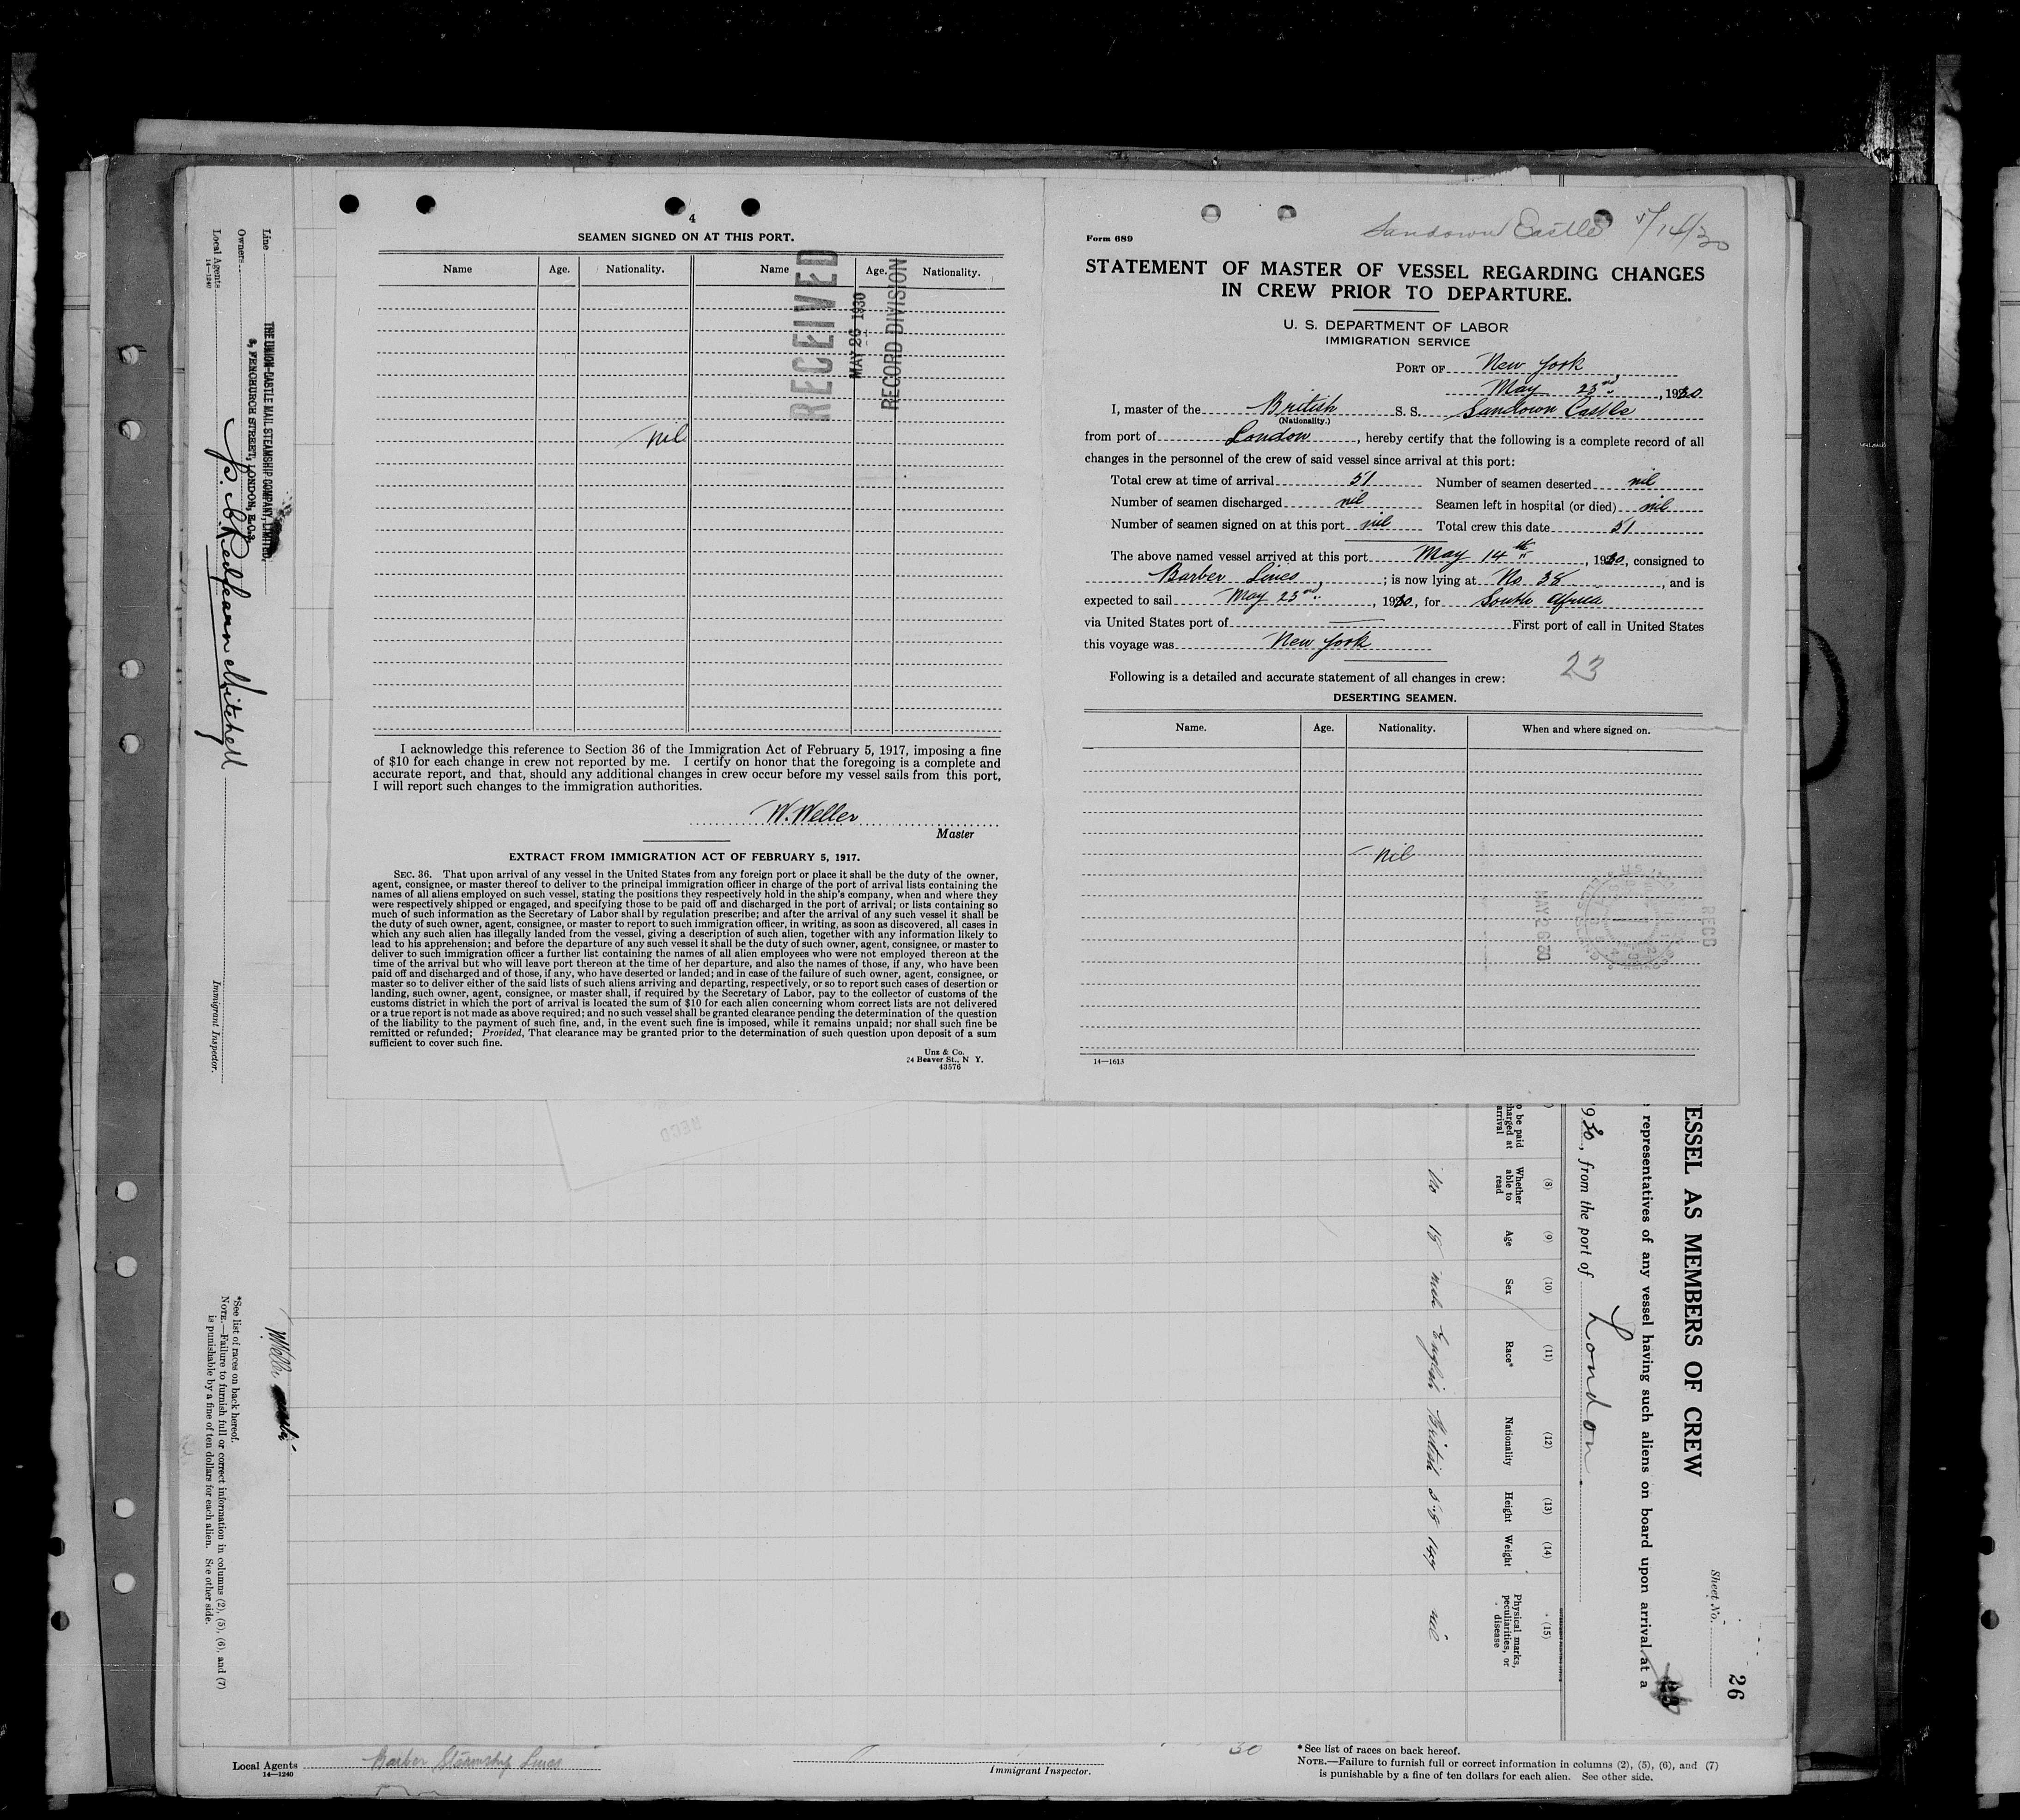 4
SEAMEN SIGNED ON AT THIS PORT.
Name Age. Nationality. Name Age. Nationality.
RECEIVED
MAY 26 1930
RECORD DIVISION
nil
I acknowledge this reference to Section 36 of the Immigration Act of February 5, 1917, imposing a fine
of $10 for each change in crew not reported by me. I certify on honor that the foregoing is a complete and
accurate report, and that, should any additional changes in crew occur before my vessel sails from this port,
I will report such changes to the immigration authorities.
W. Weller
Master
EXTRACT FROM IMMIGRATION ACT OF FEBRUARY 5, 1917.
SEC. 36. That upon arrival of any vessel in the United States from any foreign port or place it shall be the duty of the owner,
agent, consignee, or master thereof to deliver to the principal immigration officer in charge of the port of arrival lists containing the
names of all aliens employed on such vessel, stating the positions they respectively hold in the ship's company, when and where they
were respectively shipped or engaged, and specifying those to be paid off and discharged in the port of arrival; or lists containing so
much of such information as the Secretary of Labor shall by regulation prescribe; and after the arrival of any such vessel it shall be
the duty of such owner, agent, consignee, or master to report to such immigration officer, in writing, as soon as discovered, all cases in
which any such alien has illegally landed from the vessel, giving a description of such alien, together with any information likely to
lead to his apprehension; and before the departure of any such vessel it shall be the duty of such owner, agent, consignee, or master to
deliver to such immigration officer a further list containing the names of all alien employees who were not employed thereon at the
time of the arrival but who will leave port thereon at the time of her departure, and also the names of those, if any, who have been
paid off and discharged and of those, if any, who have deserted or landed; and in case of the failure of such owner, agent, consignee, or
master so to deliver either of the said lists of such aliens arriving and departing, respectively, or so to report such cases of desertion or
landing, such owner, agent, consignee, or master shall, if required by the Secretary of Labor, pay to the collector of customs of the
customs district in which the port of arrival is located the sum of $10 for each alien concerning whom correct lists are not delivered
or a true report is not made as above required; and no such vessel shall be granted clearance pending the determination of the question
of the liability to the payment of such fine, and, in the event such fine is imposed, while it remains unpaid; nor shall such fine be
remitted or refunded; Provided, That clearance may be granted prior to the determination of such question upon deposit of a sum
sufficient to cover such fine.
Unz & Co.
24 Beaver St., N Y.
43576
Sandown Castle 5/14/30
Form 689
STATEMENT OF MASTER OF VESSEL REGARDING CHANGES
IN CREW PRIOR TO DEPARTURE.
U. S. DEPARTMENT OF LABOR
IMMIGRATION SERVICE
PORT OF New York
May 23rd, 1930
I, master of the British S. S. Sandown Castle
(Nationality.)
from port of London, hereby certify that the following is a complete record of all
changes in the personnel of the crew of said vessel since arrival at this port:
Total crew at time of arrival 51 Number of seamen deserted nil
Number of seamen discharged nil Seamen left in hospital (or died) nil
Number of seamen signed on at this port nil Total crew this date 51
The above named vessel arrived at this port May 14th, 1930, consigned to
Barber Lines; is now lying at No 38, and is
expected to sail May 23rd, 1930, for South Africa
via United States port of First port of call in United States
this voyage was New York
23
Following is a detailed and accurate statement of all changes in crew:
DESERTING SEAMEN.
Name. Age. Nationality. When and where signed on.
nil
MAY 26 30
RECD
14—1613
Line THE UNION-CASTLE MAIL STEAMSHIP COMPANY, LIMITED,
Owners 3, FENCHURCH STREET, LONDON, E.C.3.
Local Agents
14—1240
Mitchell
Immigrant Inspector.
W. Weller
*See list of races on back hereof.
NOTE.—Failure to furnish full or correct information in columns (2), (5), (6), and (7)
is punishable by a fine of ten dollars for each alien. See other side.
RECD
ESSEL AS MEMBERS OF CREW
Sheet No.
26
representatives of any vessel having such aliens on board upon arrival at a
930, from the port of London
o be paid
harged at
arrival
(8) Whether able to read
(9) Age
(10) Sex
(11) Race*
(12) Nationality
(13) Height
(14) Weight
(15) Physical marks, peculiarities, or disease
male English British nil
Local Agents Barber Steamship Lines
14—1240
Immigrant Inspector.
30
*See list of races on back hereof.
NOTE.—Failure to furnish full or correct information in columns (2), (5), (6), and (7)
is punishable by a fine of ten dollars for each alien. See other side.